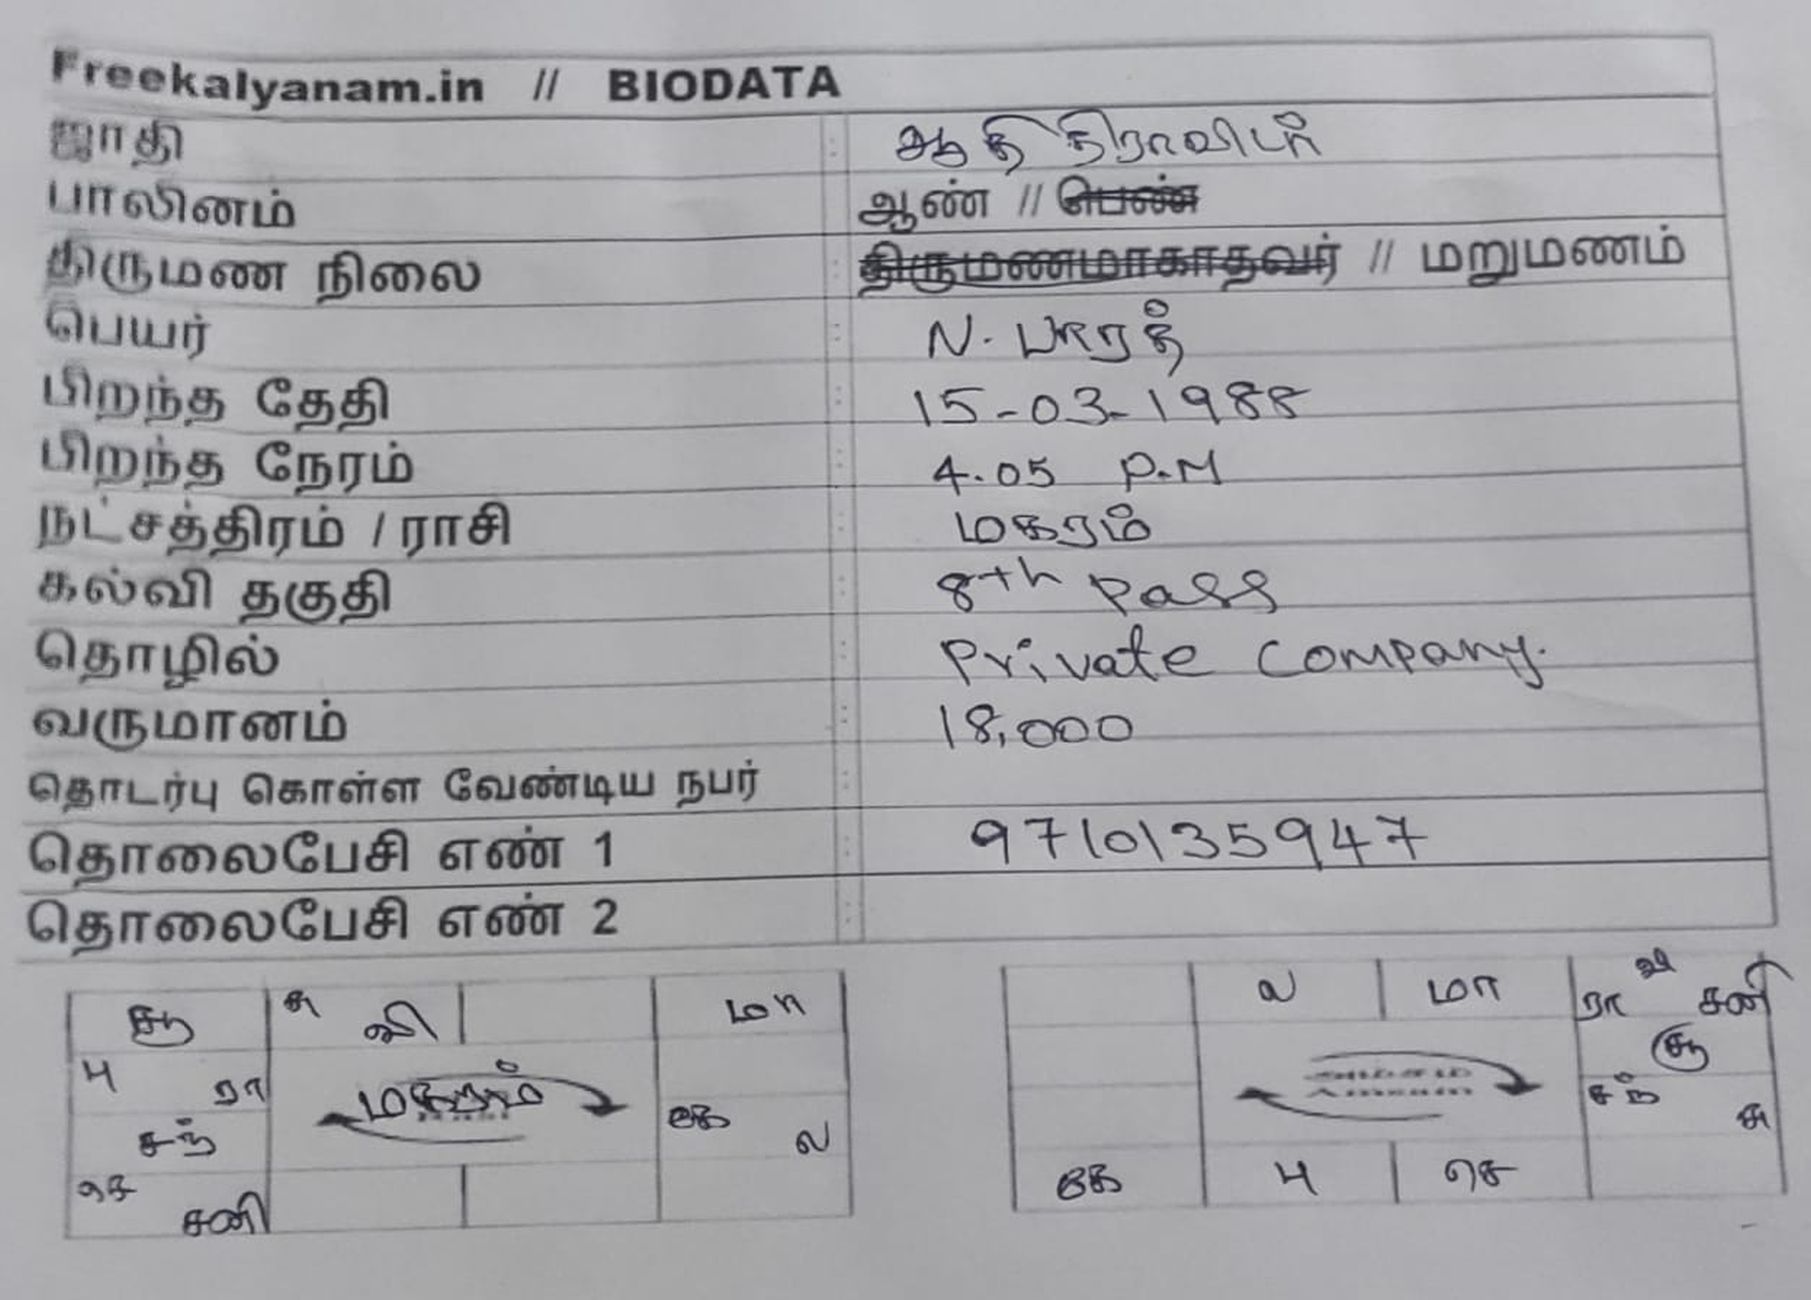 Freekalyanam.in // BIODATA
ஜாதி : ஆதி திராவிடர்
பாலினம் : ஆண் // பெண்
திருமண நிலை : திருமணமாகாதவர் // மறுமணம்
பெயர் : N. பாரத்
பிறந்த தேதி : 15-03-1988
பிறந்த நேரம் : 4.05 P.M
நட்சத்திரம் / ராசி : மகரம்
கல்வி தகுதி : 8th Pass
தொழில் : Private Company.
வருமானம் : 18,000
தொடர்பு கொள்ள வேண்டிய நபர் :
தொலைபேசி எண் 1 : 9710135947
தொலைபேசி எண் 2 :
சூ சு வி மா
பு ரா
மகரம்
சந் கே ல
செ சனி
ல மா ரா வி சனி
சூ
சந் சு
கே பு செ